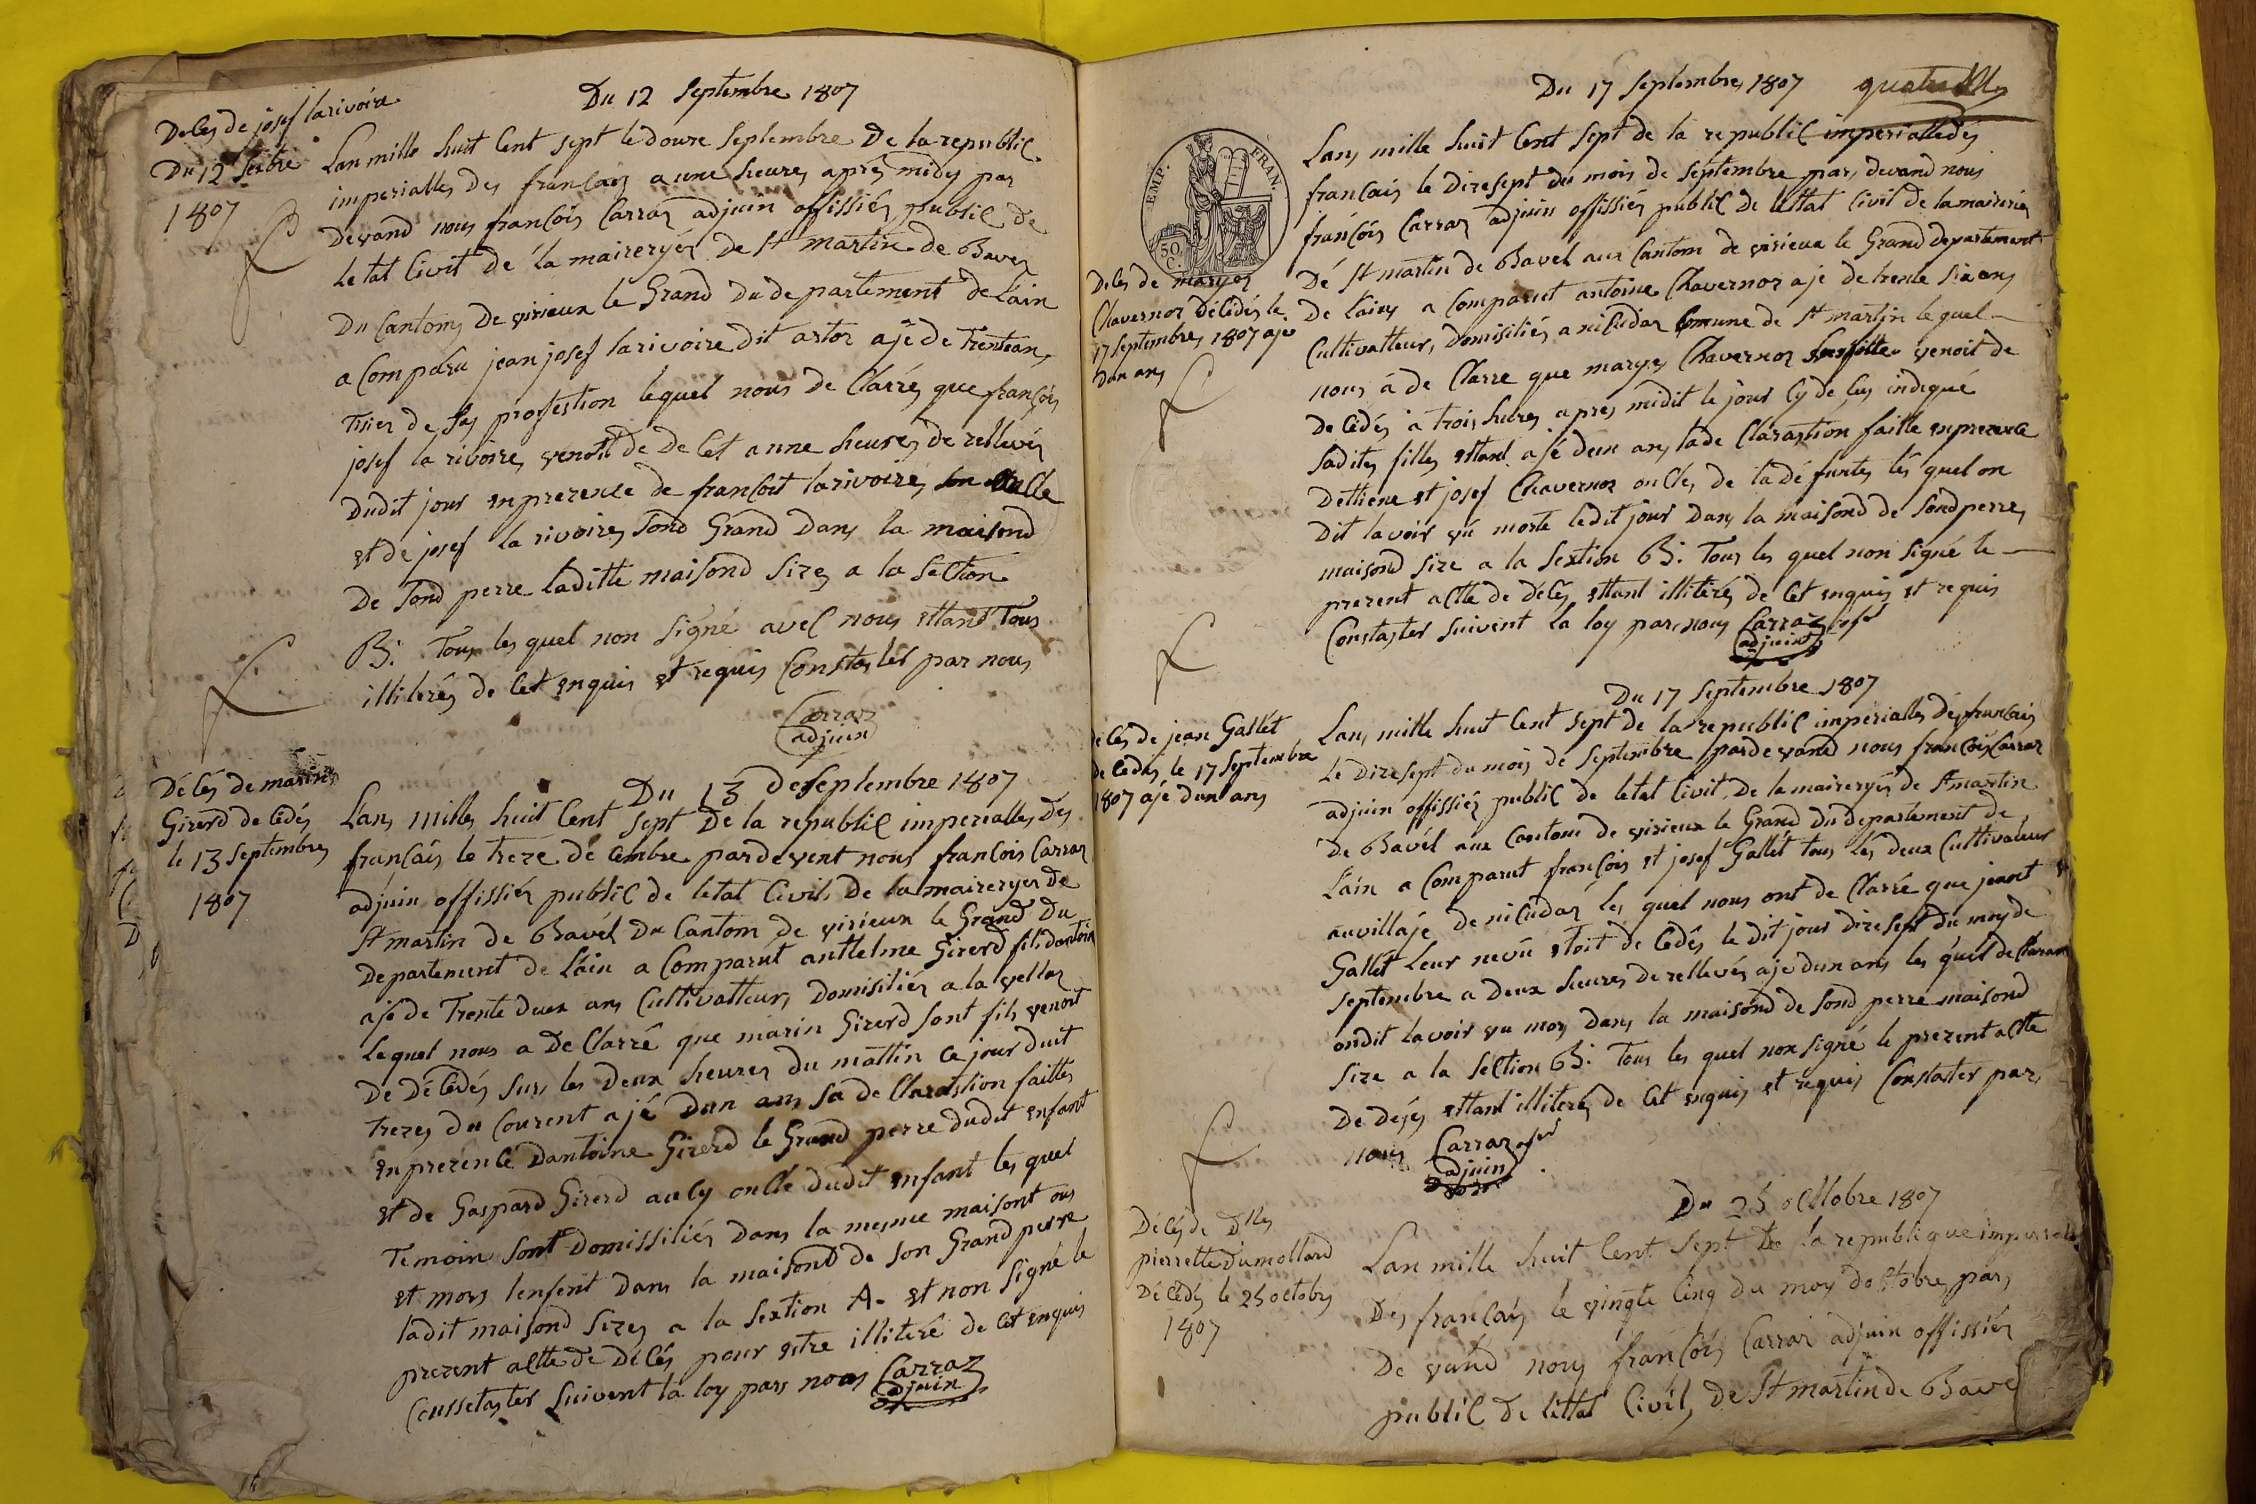 Deces de josef larivoire
Du 12 Sextre
1807
Du 12 Septembre 1807
Lan mille huit Cent sept le douze Septembre De la republic
imperialles Des francais a une heures aprés midy par
devand nous francois Carraz adjuin offissiés public de
letat Civit de la maireryés de St martin de Bavez
Du Cantom De virieux le Grand Du departement de Lain
a Comparu jean josef larivoire dit artoz ajé de Trentans
Tisier de Sas profestion lequel nous de Clarrés que françois
josef la rivoires venoit de de Cet a une heures de rellevés
Dudit jour en prezence de francoit larivoires son
et de josef la rivoires Sond Grand Dans la maisond
De Sond perre laditte maisond Sizes a la Section
B: Tous les quel non Signé avec nous ettant Tous
illiterés de Cet enquis et requis Constates par nous
Carraz
adjuin
Décés de marin
Girerd de Cedés
le 13 Septembres
1807
Du 13 de Septembre 1807
Lans milles huit Cent Sept De la republic imperialles Des
français le treze de Cembre par devent nous francois Carraz
adjuin offissiés public de letat Civils de la maireryes de
St martin de Bavél Du Cantom de virieux le Grand Du
Departement de Lain a Comparut anthelme Girerd fils dantoin
ajé de Trente deux ans Cultivatteurs Domisiliés a la vellaz
Lequel nous a De Clarré que marin Girerd Sont fils venoit
De Dé Cedés Surs les Deux heures du mattin Ce jour duit
trezes du Courent ajé Dun ans Sa de Clarastion faittes
enprezence Dantoine Girerd le Grand perre dudit enfant
et de Gaspard Girerd aucy oncle dudit enfant les quel
Temoin Sont Domissiliés Dans la mesme maisont ons
et mors lenfent Dans la maisond de Son Grand perre
ladit maisond Sizes a la Sextion A. et non Signé le
prezent actte de Décés pour estre illiteré de Cet enquis
Conssetaster Suivent la loy pars nous Carraz
adjuin
Du 17 Septembres 1807
EMP. FRAN.
50 C.
Deces de maryes
Chavernoz Décédés le
17 Septembres 1807 ajé
Dun ans
Lans mille huit Cent Sept de la republic imperialle des
francais le Dizesept du mois de Septembre pars devand nous
françois Carraz adjuin offissiés public de lettat Civil de la mairiries
Dé St martin de Bavel aux Cantom de virieux le Grand departement
De Lains a Comparut antoine Chavernoz aje de trente Six ans
Cultivatteurs Domisiliés a niCudaz Comune de St martin lequel
nous à de Clarre que maryes Chavernoz venoit de
deCedés à trois hures apres midit le jour Cy de Sus indiqué
Sadites filles ettant ajé dun ans la de Clarastion faitte enprezence
Dettiene et josef Chavernoz oncles de la dé funtes lés quel on
Dit lavoir vu morte ledit jour Dans la maisond de Sond perre
maisond Size a la Sextion B: Tous les quel non Signé le
prezent actte de Décés ettant illiterés de Cet enquis et requis
Constaster Suivent la loy pars nous Carraz
adjuin
Du 17 Septembre 1807
deCés de jean Gallét
deCedes le 17 Septembre
1807 ajé dun ans
Lans mille huit Cent Sept de la republic imperialles dés francais
Le Dizesept du mois de Septembre pardevand nous francois Carraz
adjuin offissiés public de letat Civit De la maireryés de St martin
De Bavél aux Cantom de virieux le Grand Du departement de
Lain a Comparut françois et josef Gallét tous lés deux Cultivateur
auvillaje de niCudaz les quel nous ont de Clarré que jeant
Gallét Leur nevü etoit de Cedés le dit jour dize Sept du moy de
Septembre a Deux heures de rellevés aje dun ans les quel de Claran
ondit lavoir vu mors Dans la maisond de Sond perre maisond
Size a la Section B: Tous les quel non Signé le prezent actte
De Desés ettant illiterés de Cet enquis et requis Constaster pars
nous Carraz
adjuin
Du 25 octtobre 1807
Décés de Dlles
pierrette Dumollard
Décédés le 25 octobres
1807
Lan mille huit Cent Sept De la republique imperialle
Des francais le vingte Cinq du moy doctobre pars
De vand nous françois Carraz adjuin offissiés
public de lettat Civil de St martin de Bavel